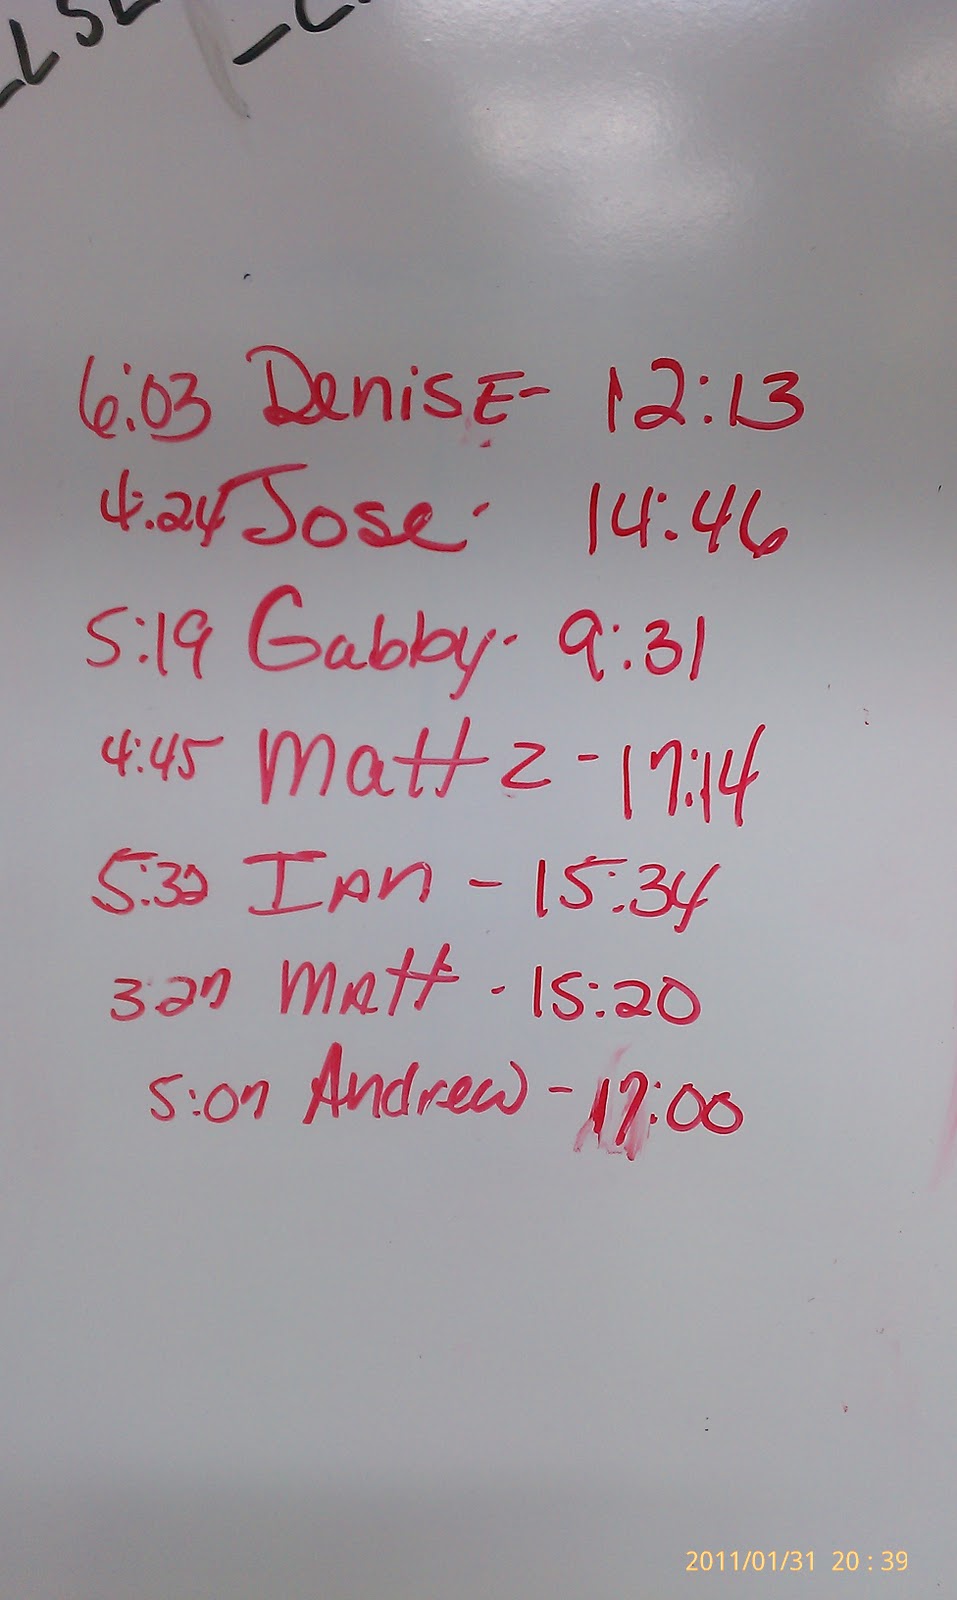 6:03 Denise- 12:13
4:24 Jose- 14:46
5:19 Gabby- 9:31
4:45 Matt Z - 17:14
5:32 Ian - 15:34
3:27 Matt - 15:20
5:07 Andrew - 17:00
2011/01/31 20:39